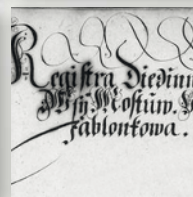 Registra Diedinn
Wsy Mostůw. 
Jablonkowa.